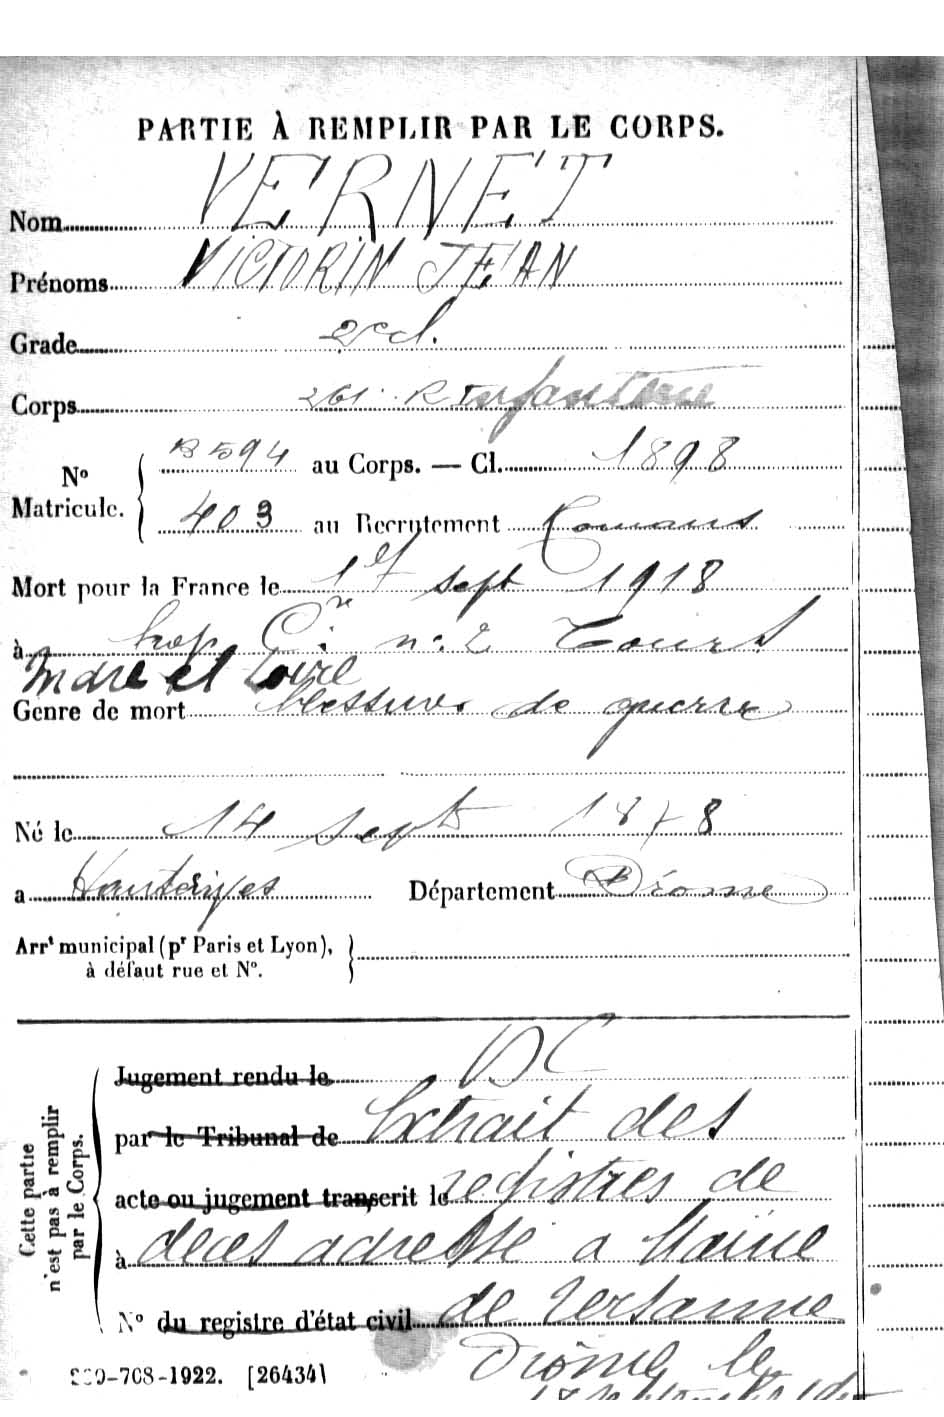 PARTIE À REMPLIR PAR LE CORPS.
Nom VERNET
Prénoms VICTORIN JEAN
Grade 2e cl.
Corps 261 R Infanterie
No Matricule. B594 au Corps. — Cl. 1898
403 au Recrutement Romans
Mort pour la France le 1er sept 1918
à hop Cre n: 2 Tours
Indre et Loire
Genre de mort blessures de guerre
Né le 14 sept 1878
a Hauterives Département Drôme
Arrt municipal (pr Paris et Lyon),
à défaut rue et No.
DC
Cette partie n'est pas à remplir par le Corps.
Jugement rendu le
par le Tribunal de Extrait des
acte ou jugement transcrit le registres de
à deces adressé a Mairie
No du registre d'état civil de
Drôme le
-708-1922. [26434]